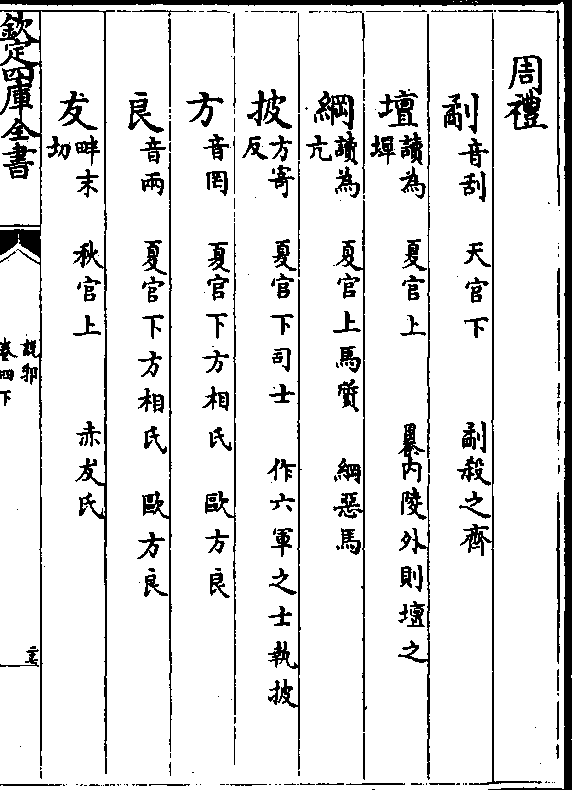 周禮
劀 音刮 天官下 劀殺之齊
壇 讀為墠 夏官上 㬥内陵外則壇之
綱 讀為亢 夏官上馬質 綱惡馬
披 方寄反 夏官下司士 作六軍之士執披
方 音罔 夏官下方相氏 歐方良
良 音兩 夏官下方相氏 歐方良
犮 畔末切 秋官上 赤犮氏
欽定四庫全書
說郛
卷四下